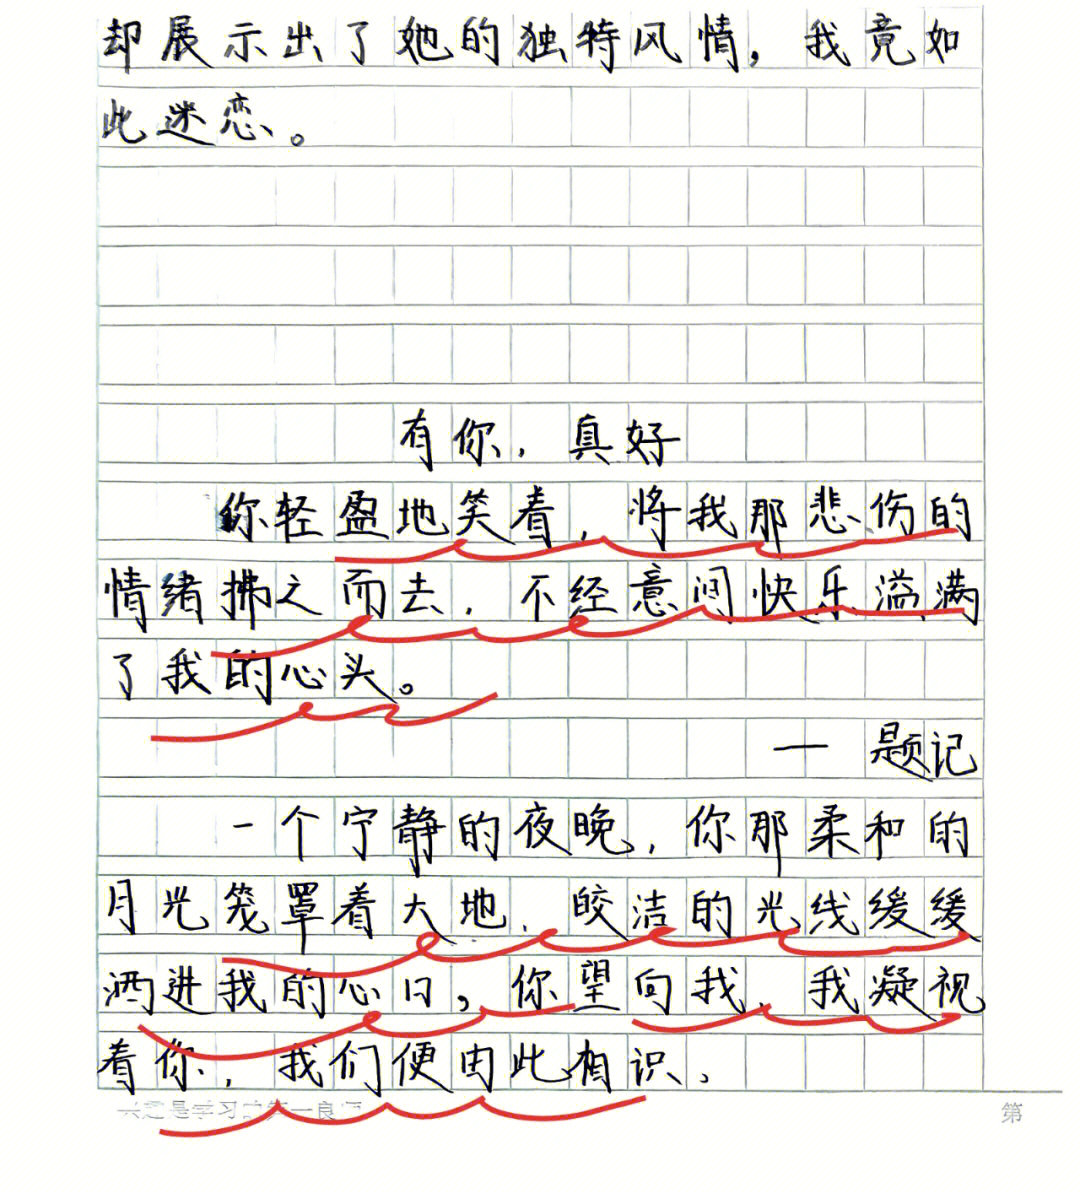 却展示出了她的独特风情，我竟如
此迷恋。
有你，真好
你轻盈地笑着，将我那悲伤的
情绪拂之而去，不经意间快乐溢满
了我的心头。
一 题记
一个宁静的夜晚，你那柔和的
月光笼罩着大地，皎洁的光线缓缓
洒进我的心田，你望向我，我凝视
着你，我们便由此相识、
兴趣是学习的第一良师
第